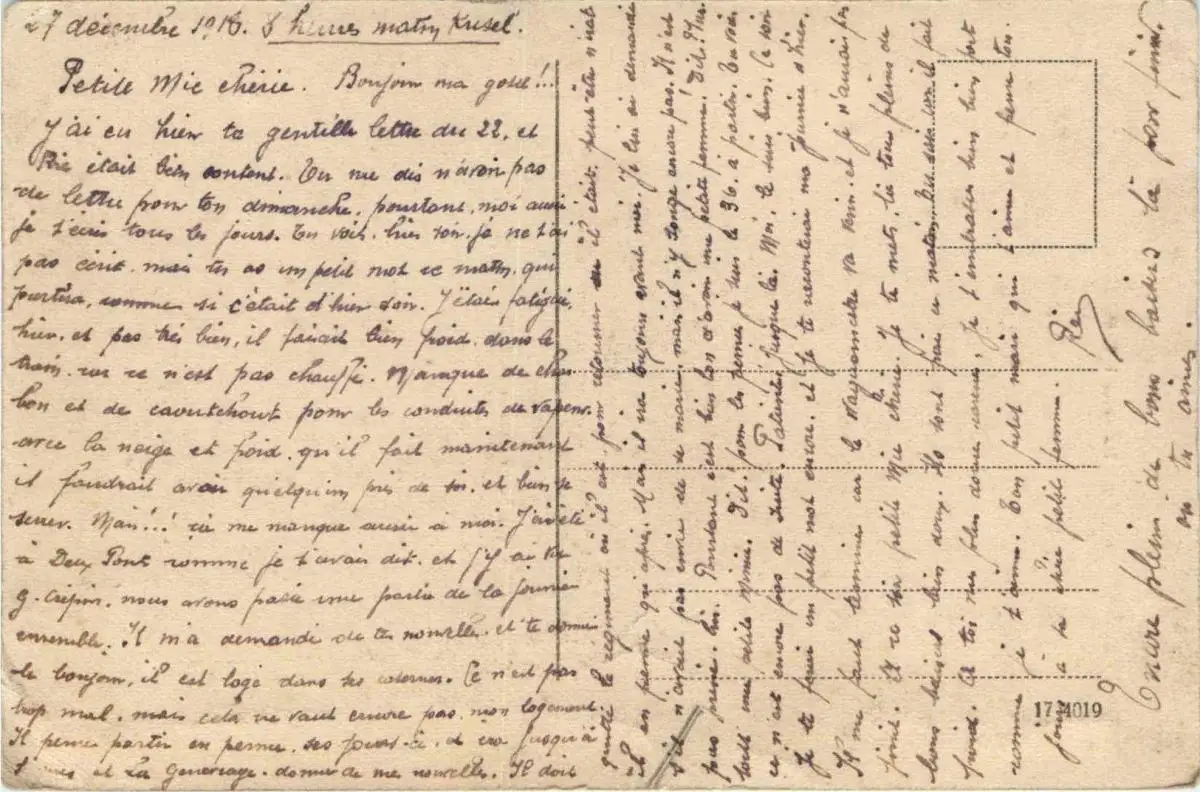 27 décembre 1918. 8 heures matin Kusel.
Petite Mie chérie. Bonjour ma gosse!!!
J'ai eu hier ta gentille lettre du 22. et
était bien content. Tu me dis n'avoir pas
de lettre pour ton dimanche. pourtant, moi aussi
je t'écris tous les jours. Tu vois. hier soir. je ne t'ai
pas écrit. mais tu as un petit mot ce matin. qui
partira, comme si c'était d'hier soir. J'étais fatigué.
hier. et pas très bien, il faisait bien froid. dans le
train. car ce n'est pas chauffé. Manque de char
bon et de caoutchouc pour les conduites de vapeur.
avec la neige et froid. qu'il fait maintenant
il faudrait avoir quelqu'un près de soi. et bien se
serrer. Mais!!! ça me manque aussi à moi. J'ai été
à Deux Ponts comme je t'avais dit. et j'y ai vu
g. crépin. nous avons passé une partie de la journée
ensemble. Il m'a demandé de tes nouvelles. et te donne
le bonjour, il est logé dans des casernes. Ce n'est pas
trop mal. mais cela ne vaut encore pas. mon logement.
Il pense partir en perme. ces jours-ci. et ira jusqu'à
et La donner de mes nouvelles. Il doit
le régiment où il est pour retourner où il était. peut-être n'ira t
il en perme qu'après. Mais il va toujours avant moi. Je lui ai demandé
s'il n'avait pas envie de se marier. mais il n'y songe encore pas. Il n'est
pas pressé. lui. Pourtant c'est bien bon d'avoir une petite femme. Dis. Plus
toute une petite Mimie. Dis. pour les permes je suis le 36. à partir. Tu vois
ce n'est encore pas de suite. Patiente jusque là. Moi. le suis bien. Ce soir
Je te ferai un petit mot encore. et Je te raconterai ma journée d'hier.
Il me faut terminer car le vaguemestre va venir. et je n'aurai pas
fini. Et ce ma petite Mie chérie. Je te mets. là tous pleins de
bons baisers bien doux. Ils sont frais ce matin. dis. il fait
froid. Et toi mes plus doux. Je t'embrasse bien bien fort
comme je t'aime. Ton petit mari qui t'aime et pense ton
jours à sa chère petite femme.
Encore plein de bons baisers là pour finir.
ou tu aimes
17 4019